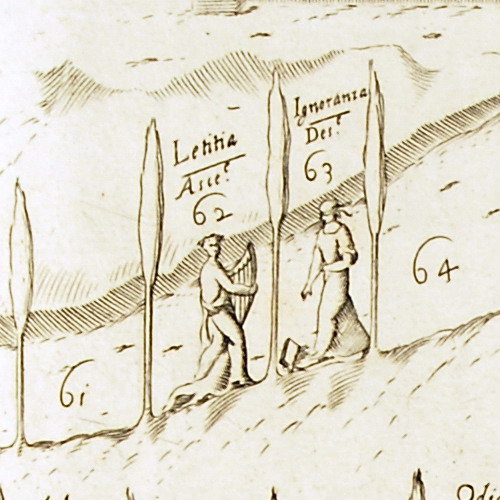 Letitia
Asce.
62
Ignoranza
Des.
63
64
61